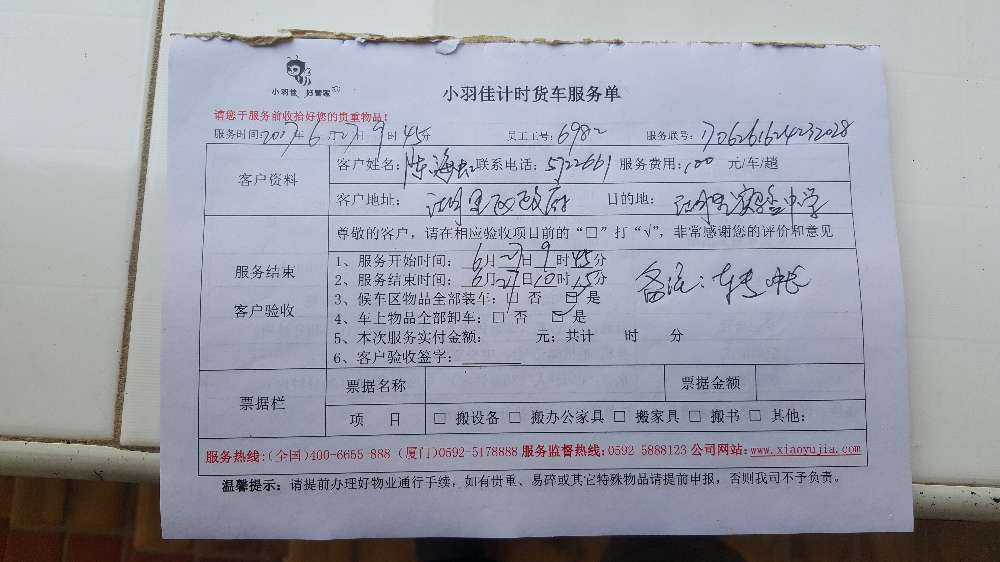 小羽佳 好管家
小羽佳计时货车服务单
请您于服务前收拾好您的贵重物品!
服务时间:2017年6月27日9时45分 员工工号:6982 服务联号:706261624232028
客户资料
客户姓名:陈海 联系电话:5722661 服务费用:100 元/车/趟
客户地址: 湖里区政府 目的地: 湖里实验中学
尊敬的客户,请在相应验收项目前的“□”打“√”,非常感谢您的评价和意见
服务结束
客户验收
1、服务开始时间: 6月27日9时45分
2、服务结束时间: 6月27日10时15分
3、候车区物品全部装车:□ 否 ☑ 是
4、车上物品全部卸车:□ 否 ☑ 是
5、本次服务实付金额: 元;共计 时 分
6、客户验收签字:
备注:
票据栏
票据名称 票据金额
项 目 □ 搬设备 □ 搬办公家具 □ 搬家具 □ 搬书 □ 其他:
服务热线:(全国)400-6655-888 (厦门)0592-5178888 服务监督热线:0592 5888123 公司网站:www.xiaoyujia.com
温馨提示:请提前办理好物业通行手续,如有贵重、易碎或其它特殊物品请提前申报,否则我司不予负责。